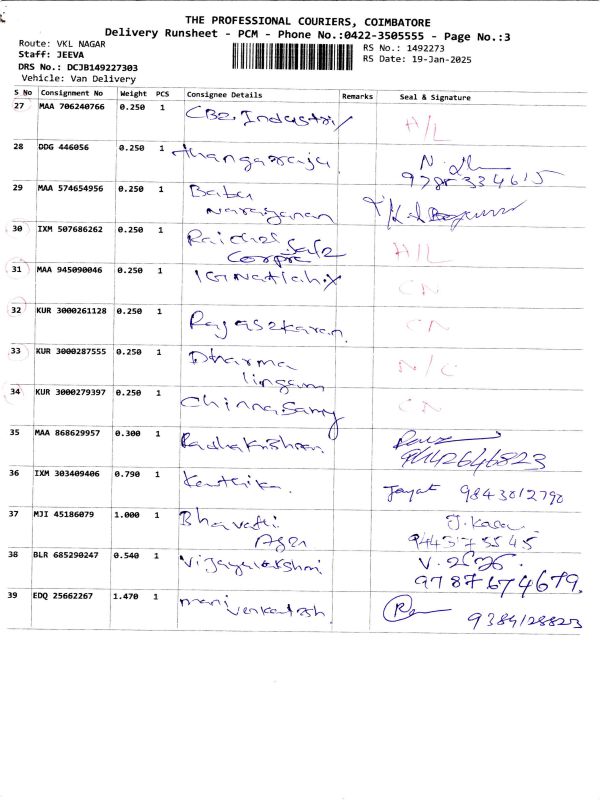 THE PROFESSIONAL COURIERS, COIMBATORE
Delivery Runsheet - PCM - Phone No.:0422-3505555 - Page No.:3
Route: VKL NAGAR
RS No.: 1492273
Staff: JEEVA
RS Date: 19-Jan-2025
DRS No.: DCJB149227303
Vehicle: Van Delivery
S No Consignment No Weight PCS Consignee Details Remarks Seal & Signature
27 MAA 706240766 0.250 1 CBE Industri H/L
28 DDG 446056 0.250 1 thangaraju
29 MAA 574654956 0.250 1 Babu
Narayanan
30 IXM 507686262 0.250 1 Safe H/L
31 MAA 945090046 0.250 1 CN
32 KUR 3000261128 0.250 1 Rajasekaran CN
33 KUR 3000287555 0.250 1 Dharma N/C
lingam
34 KUR 3000279397 0.250 1 Chinnasamy CN
35 MAA 868629957 0.300 1 Radhakrishnan
9442646823
36 IXM 303409406 0.790 1 Karthika. 9843012790
37 MJI 45186079 1.000 1 Bhavathi
Agen
38 BLR 685290247 0.540 1 Vijayalakshmi
9787674679.
39 EDQ 25662267 1.470 1 mani
Venkatesh 9384128823